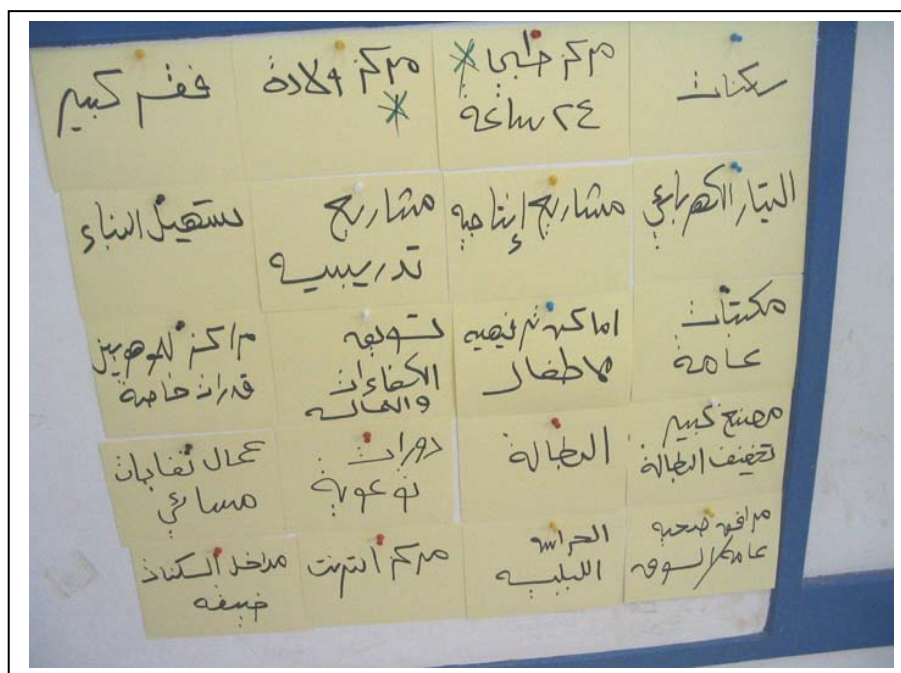 سكنات
مركز طبي *
٢٤ ساعة
مركز ولادة
*
فقر كبير
التيار الكهربائي
مشاريع إنتاجيه
مشاريع
تدريبيه
تسهيل البناء
مكتبات
عامة
اماكن ترفيهيه
للاطفال
تسويق
الكفاءات
والعماله
مراكز للموهوبين
قدرات خاصة
مصنع كبير
تخفيف البطالة
البطالة
دورات
توعوية
عمال نفايات
مسائي
مرافق صحيه
عامة/السوق
الحراسه
الليليه
مركز انترنت
مداخل السكنات
ضيقه